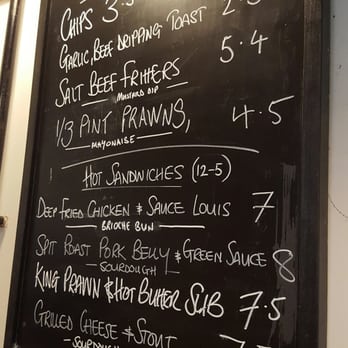 CHIPS 3.5
GARLIC, BEEF DRIPPING TOAST
SALT BEEF FRITTERS 5.4
MUSTARD DIP
1/3 PINT PRAWNS, 4.5
MAYONAISE
HOT SANDWICHES (12-5)
DEEP FRIED CHICKEN & SAUCE LOUIS 7
BRIOCHE BUN
SPIT ROAST PORK BELLY & GREEN SAUCE 8
SOURDOUGH
KING PRAWN & HOT BUTTER SUB 7.5
GRILLED CHEESE & STOUT
SOURDOUGH